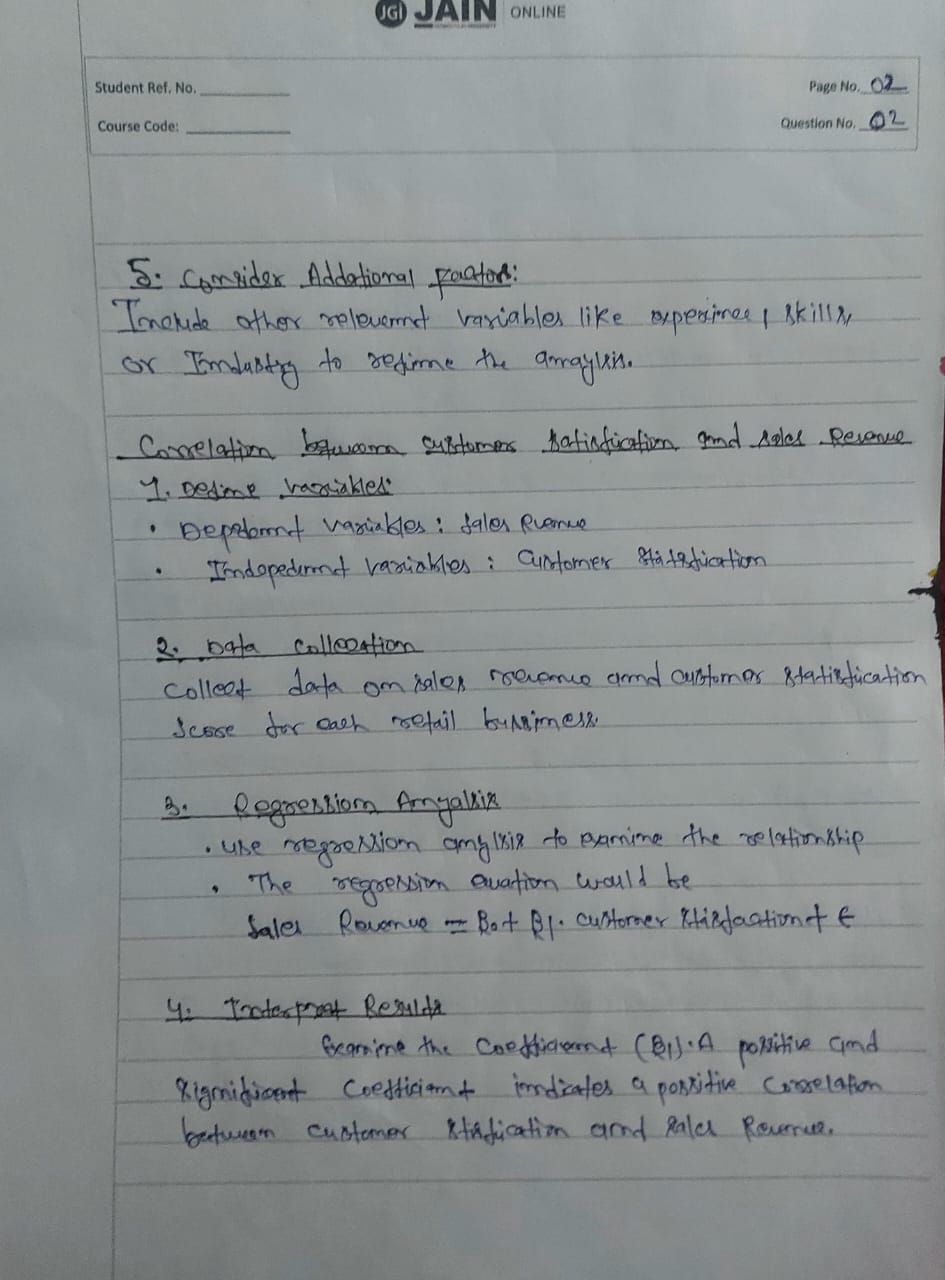 JGI JAIN ONLINE
Student Ref. No.
Page No. 02
Course Code:
Question No. 02
5. Consider Addational factors:
Include other relevemnt variables like experimee, skills,
or Imdustry to refime the amaylsis.
Correlation between customers satisfication and sales Revenue
1. Defime variables:
• Depedornnt variables: Sales Revenue
• Imdopedermnt variables: Customer Statisfication
2. Data Colleection
Collect data om sales revenue amd customer statisfication
Score for each retail bussimess.
3. Regressiom Amyalsis
• Use regression amylsis to examime the relationship
• The regression euation would be
Sales Revenue = B0 + B1. Customer Stisfaaction + E
4. Interpreat Resulds
Examime the Coefficiemnt (B1). A possitive amd
Sigmificent Coefficiemt imdicates a possitive Correlation
between customer stisfication amd sales Revenue.